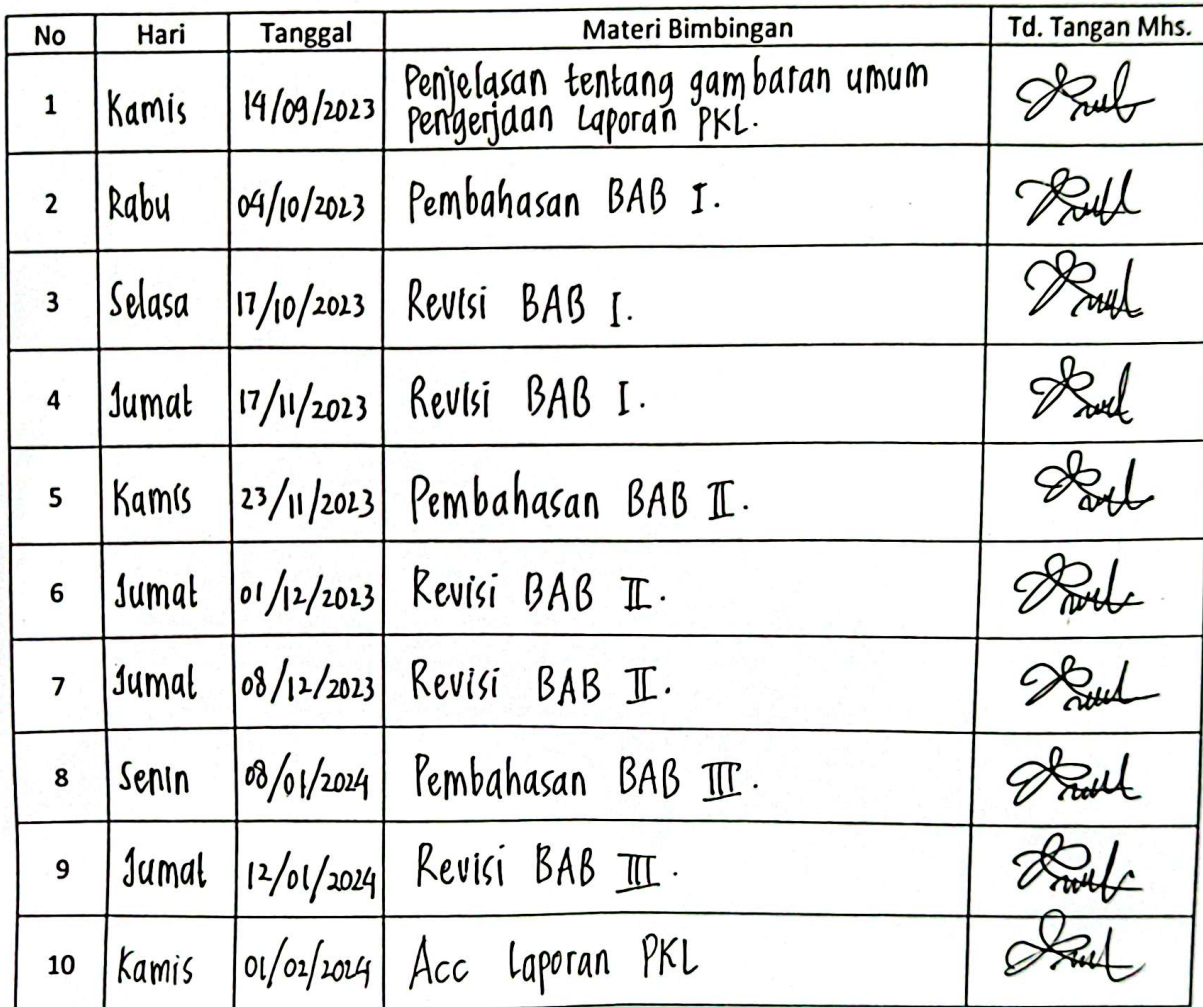 No Hari Tanggal Materi Bimbingan Td. Tangan Mhs.
1 Kamis 14/09/2023 Penjelasan tentang gambaran umum
pengerjaan Laporan PKL.
2 Rabu 04/10/2023 Pembahasan BAB I.
3 Selasa 17/10/2023 Revisi BAB I.
4 Jumat 17/11/2023 Revisi BAB I.
5 Kamis 23/11/2023 Pembahasan BAB II.
6 Jumat 01/12/2023 Revisi BAB II.
7 Jumat 08/12/2023 Revisi BAB II.
8 Senin 08/01/2024 Pembahasan BAB III.
9 Jumat 12/01/2024 Revisi BAB III.
10 Kamis 01/02/2024 Acc Laporan PKL